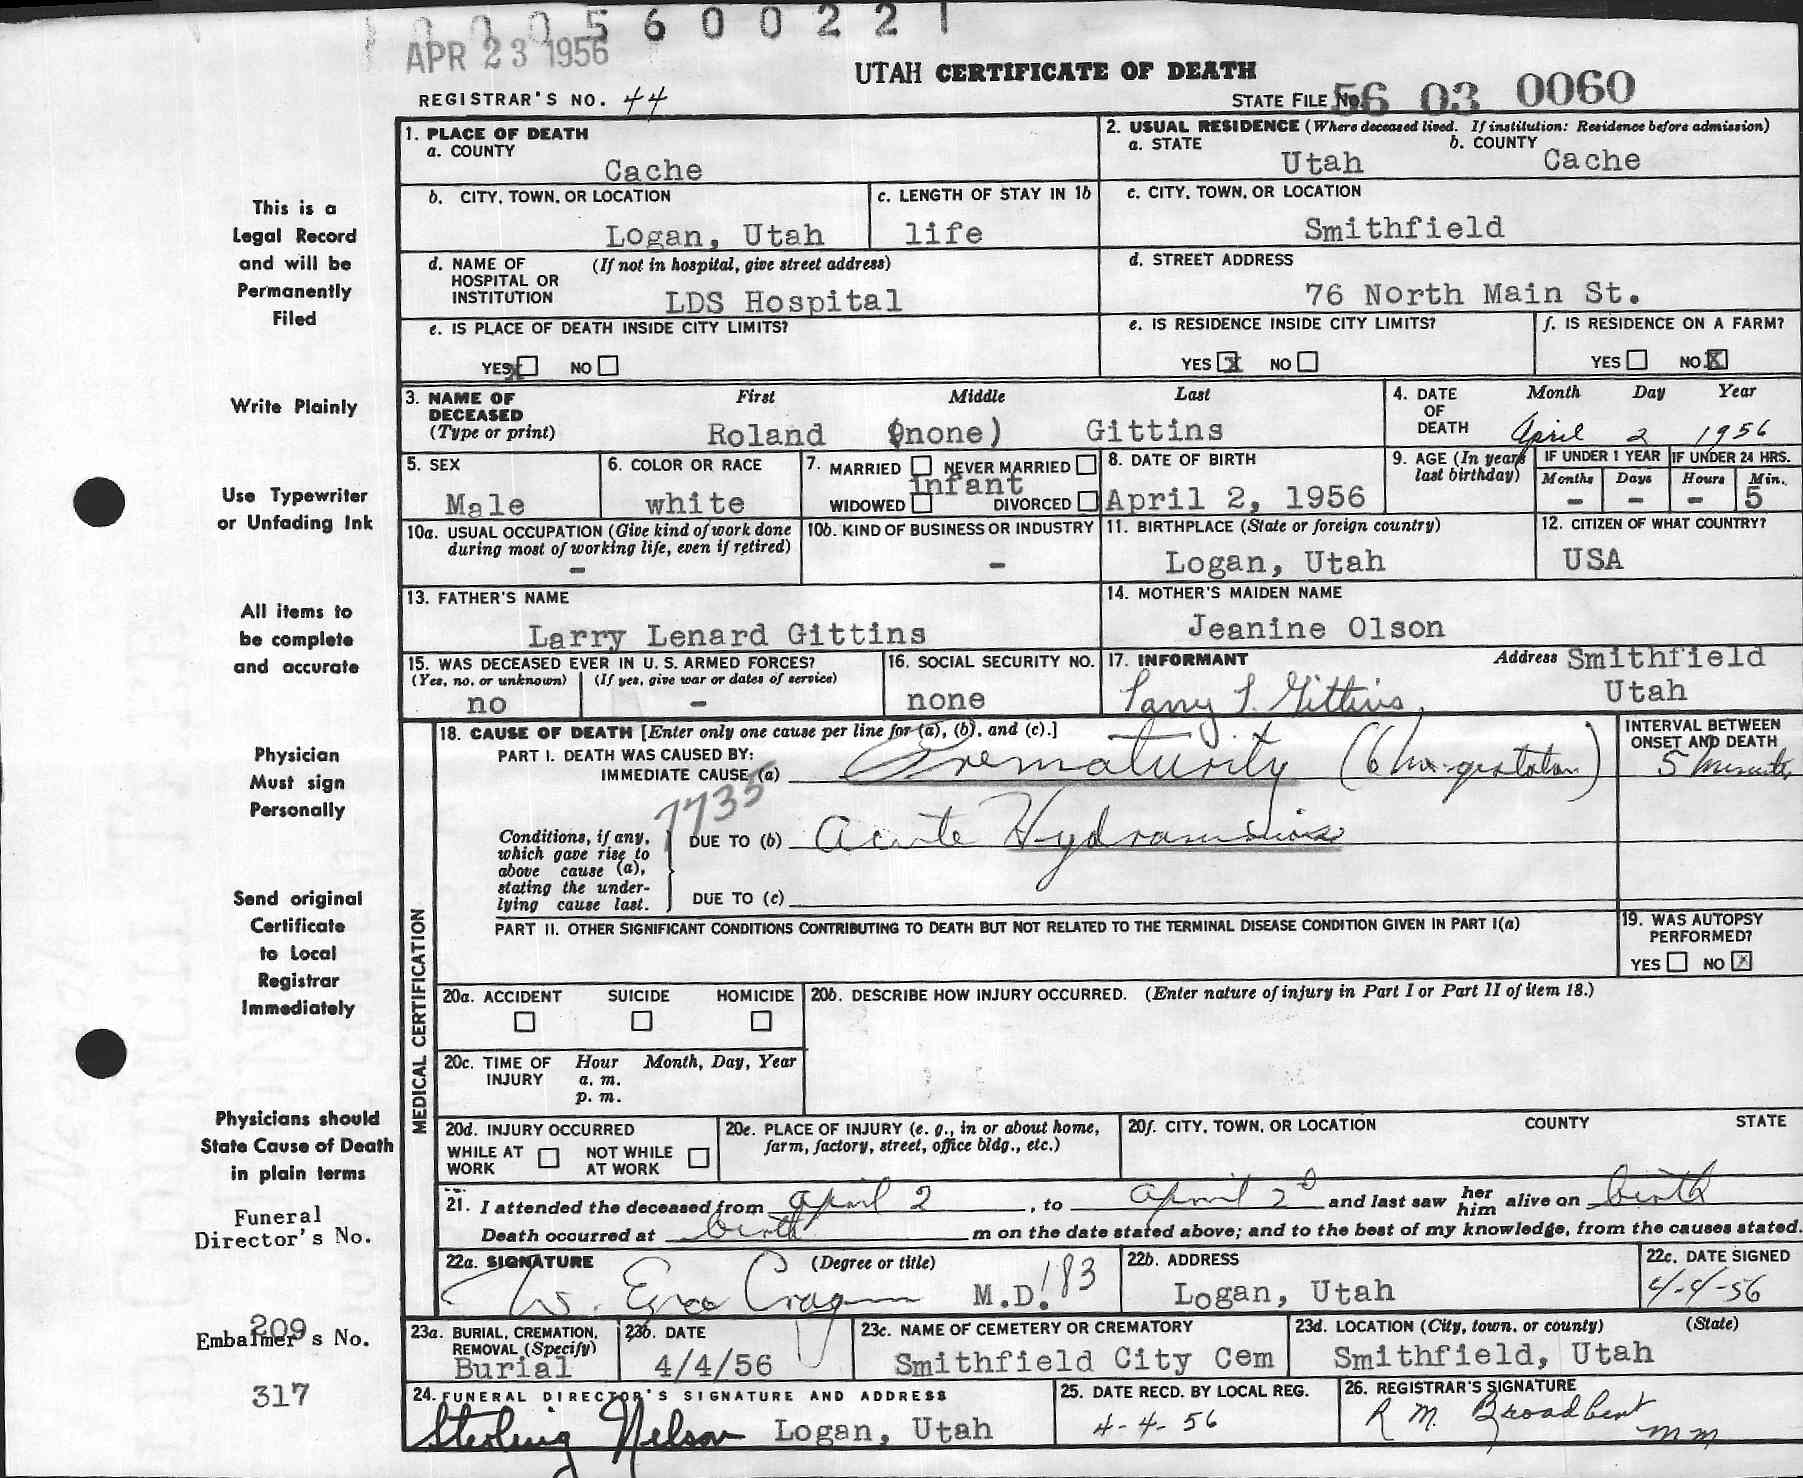 0 0 0 5 6 0 0 2 2 1
APR 23 1956
UTAH CERTIFICATE OF DEATH
REGISTRAR'S NO. 44
STATE FILE No. 56 03 0060
This is a
Legal Record
and will be
Permanently
Filed
Write Plainly
Use Typewriter
or Unfading Ink
All items to
be complete
and accurate
Physician
Must sign
Personally
Send original
Certificate
to Local
Registrar
Immediately
Physicians should
State Cause of Death
in plain terms
Funeral
Director's No.
209
Embalmer's No.
317
1. PLACE OF DEATH
a. COUNTY
Cache
2. USUAL RESIDENCE (Where deceased lived. If institution: Residence before admission)
a. STATE Utah b. COUNTY Cache
b. CITY, TOWN, OR LOCATION
Logan, Utah
c. LENGTH OF STAY IN 1b
life
c. CITY, TOWN, OR LOCATION
Smithfield
d. NAME OF HOSPITAL OR INSTITUTION (If not in hospital, give street address)
LDS Hospital
d. STREET ADDRESS
76 North Main St.
e. IS PLACE OF DEATH INSIDE CITY LIMITS?
YES x NO
e. IS RESIDENCE INSIDE CITY LIMITS?
YES x NO
f. IS RESIDENCE ON A FARM?
YES NO x
3. NAME OF DECEASED (Type or print) First Middle Last
Roland (none) Gittins
4. DATE OF DEATH Month Day Year
April 2 1956
5. SEX
Male
6. COLOR OR RACE
white
7. MARRIED NEVER MARRIED
Infant
WIDOWED DIVORCED
8. DATE OF BIRTH
April 2, 1956
9. AGE (In years last birthday)
IF UNDER 1 YEAR IF UNDER 24 HRS.
Months Days Hours Min.
- - - 5
10a. USUAL OCCUPATION (Give kind of work done during most of working life, even if retired)
-
10b. KIND OF BUSINESS OR INDUSTRY
-
11. BIRTHPLACE (State or foreign country)
Logan, Utah
12. CITIZEN OF WHAT COUNTRY?
USA
13. FATHER'S NAME
Larry Lenard Gittins
14. MOTHER'S MAIDEN NAME
Jeanine Olson
15. WAS DECEASED EVER IN U. S. ARMED FORCES?
(Yes, no, or unknown) (If yes, give war or dates of service)
no -
16. SOCIAL SECURITY NO.
none
17. INFORMANT Address Smithfield
Larry L. Gittins Utah
MEDICAL CERTIFICATION
18. CAUSE OF DEATH [Enter only one cause per line for (a), (b), and (c).]
INTERVAL BETWEEN ONSET AND DEATH
PART I. DEATH WAS CAUSED BY:
IMMEDIATE CAUSE (a) Prematurity (6 mo. gestation) 5 minutes
7735
Conditions, if any, which gave rise to above cause (a), stating the underlying cause last.
DUE TO (b) Acute Hydramnios
DUE TO (c)
PART II. OTHER SIGNIFICANT CONDITIONS CONTRIBUTING TO DEATH BUT NOT RELATED TO THE TERMINAL DISEASE CONDITION GIVEN IN PART I(a)
19. WAS AUTOPSY PERFORMED?
YES NO x
20a. ACCIDENT SUICIDE HOMICIDE
20b. DESCRIBE HOW INJURY OCCURRED. (Enter nature of injury in Part I or Part II of item 18.)
20c. TIME OF INJURY Hour Month, Day, Year
a. m.
p. m.
20d. INJURY OCCURRED
WHILE AT WORK NOT WHILE AT WORK
20e. PLACE OF INJURY (e. g., in or about home, farm, factory, street, office bldg., etc.)
20f. CITY, TOWN, OR LOCATION COUNTY STATE
21. I attended the deceased from April 2, to April 2d and last saw her him alive on birth
Death occurred at birth m on the date stated above; and to the best of my knowledge, from the causes stated.
22a. SIGNATURE (Degree or title)
W. Ezra Cragun M.D. 183
22b. ADDRESS
Logan, Utah
22c. DATE SIGNED
4-4-56
23a. BURIAL, CREMATION, REMOVAL (Specify)
Burial
23b. DATE
4/4/56
23c. NAME OF CEMETERY OR CREMATORY
Smithfield City Cem
23d. LOCATION (City, town, or county) (State)
Smithfield, Utah
24. FUNERAL DIRECTOR'S SIGNATURE AND ADDRESS
Sterling Nelson Logan, Utah
25. DATE RECD. BY LOCAL REG.
4-4-56
26. REGISTRAR'S SIGNATURE
R M. Broadbent
mm